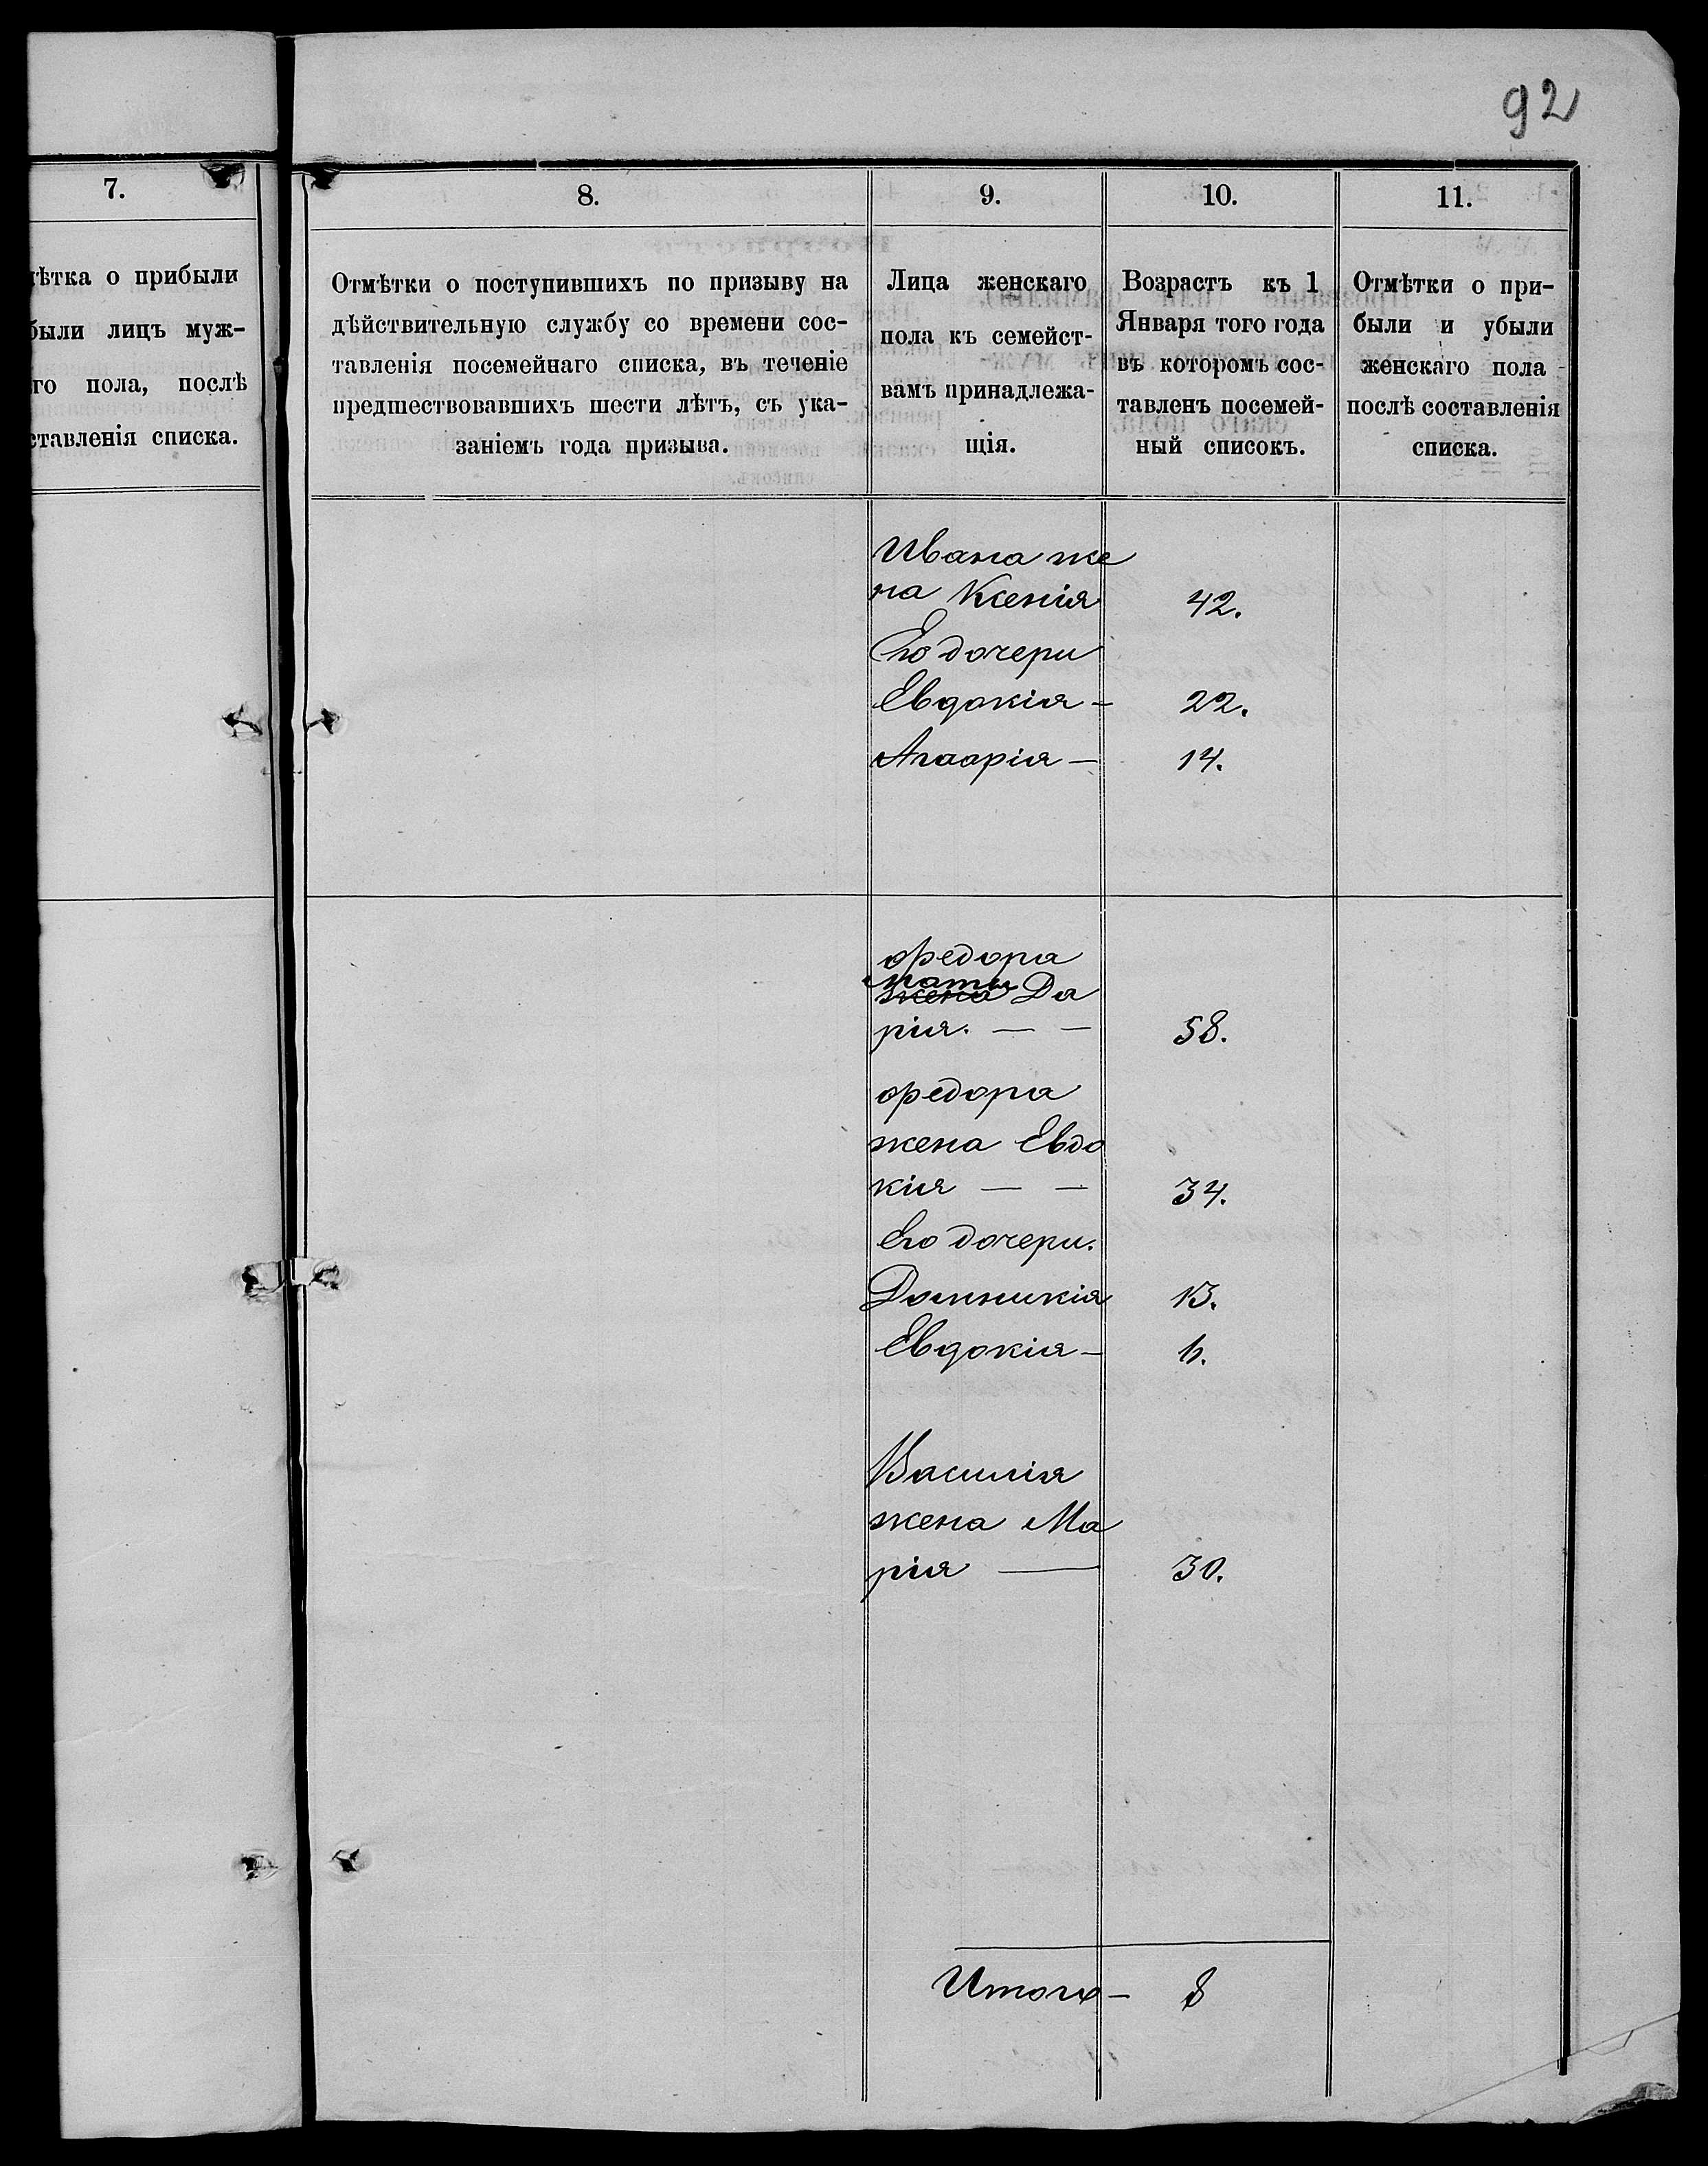 92
7.
ѣтка о прибыли
были лицъ муж-
го пола, послѣ
ставленія списка.
8.
Отмѣтки о поступившихъ по призыву на
дѣйствительную службу со времени сос-
тавленія посемейнаго списка, въ теченіе
предшествовавшихъ шести лѣтъ, съ ука-
заніемъ года призыва.
9.
Лица женскаго
пола къ семейст-
вамъ принадлежа-
щія.
10.
Возрастъ къ 1
Января того года
въ которомъ сос-
тавленъ посемей-
ный списокъ.
11.
Отмѣтки о при-
были и убыли
женскаго пола
послѣ составленія
списка.
Ивана же
на Ксенія 42.
Его дочери
Евдокія - 22.
14.
Федора
мати
жена Да
рія. — — 58.
Федора
жена Евдо
кія — — 34.
Его дочери.
Домникія 13.
Евдокія - 6.
Василія
жена Ма
рія — 30.
Итого - 8